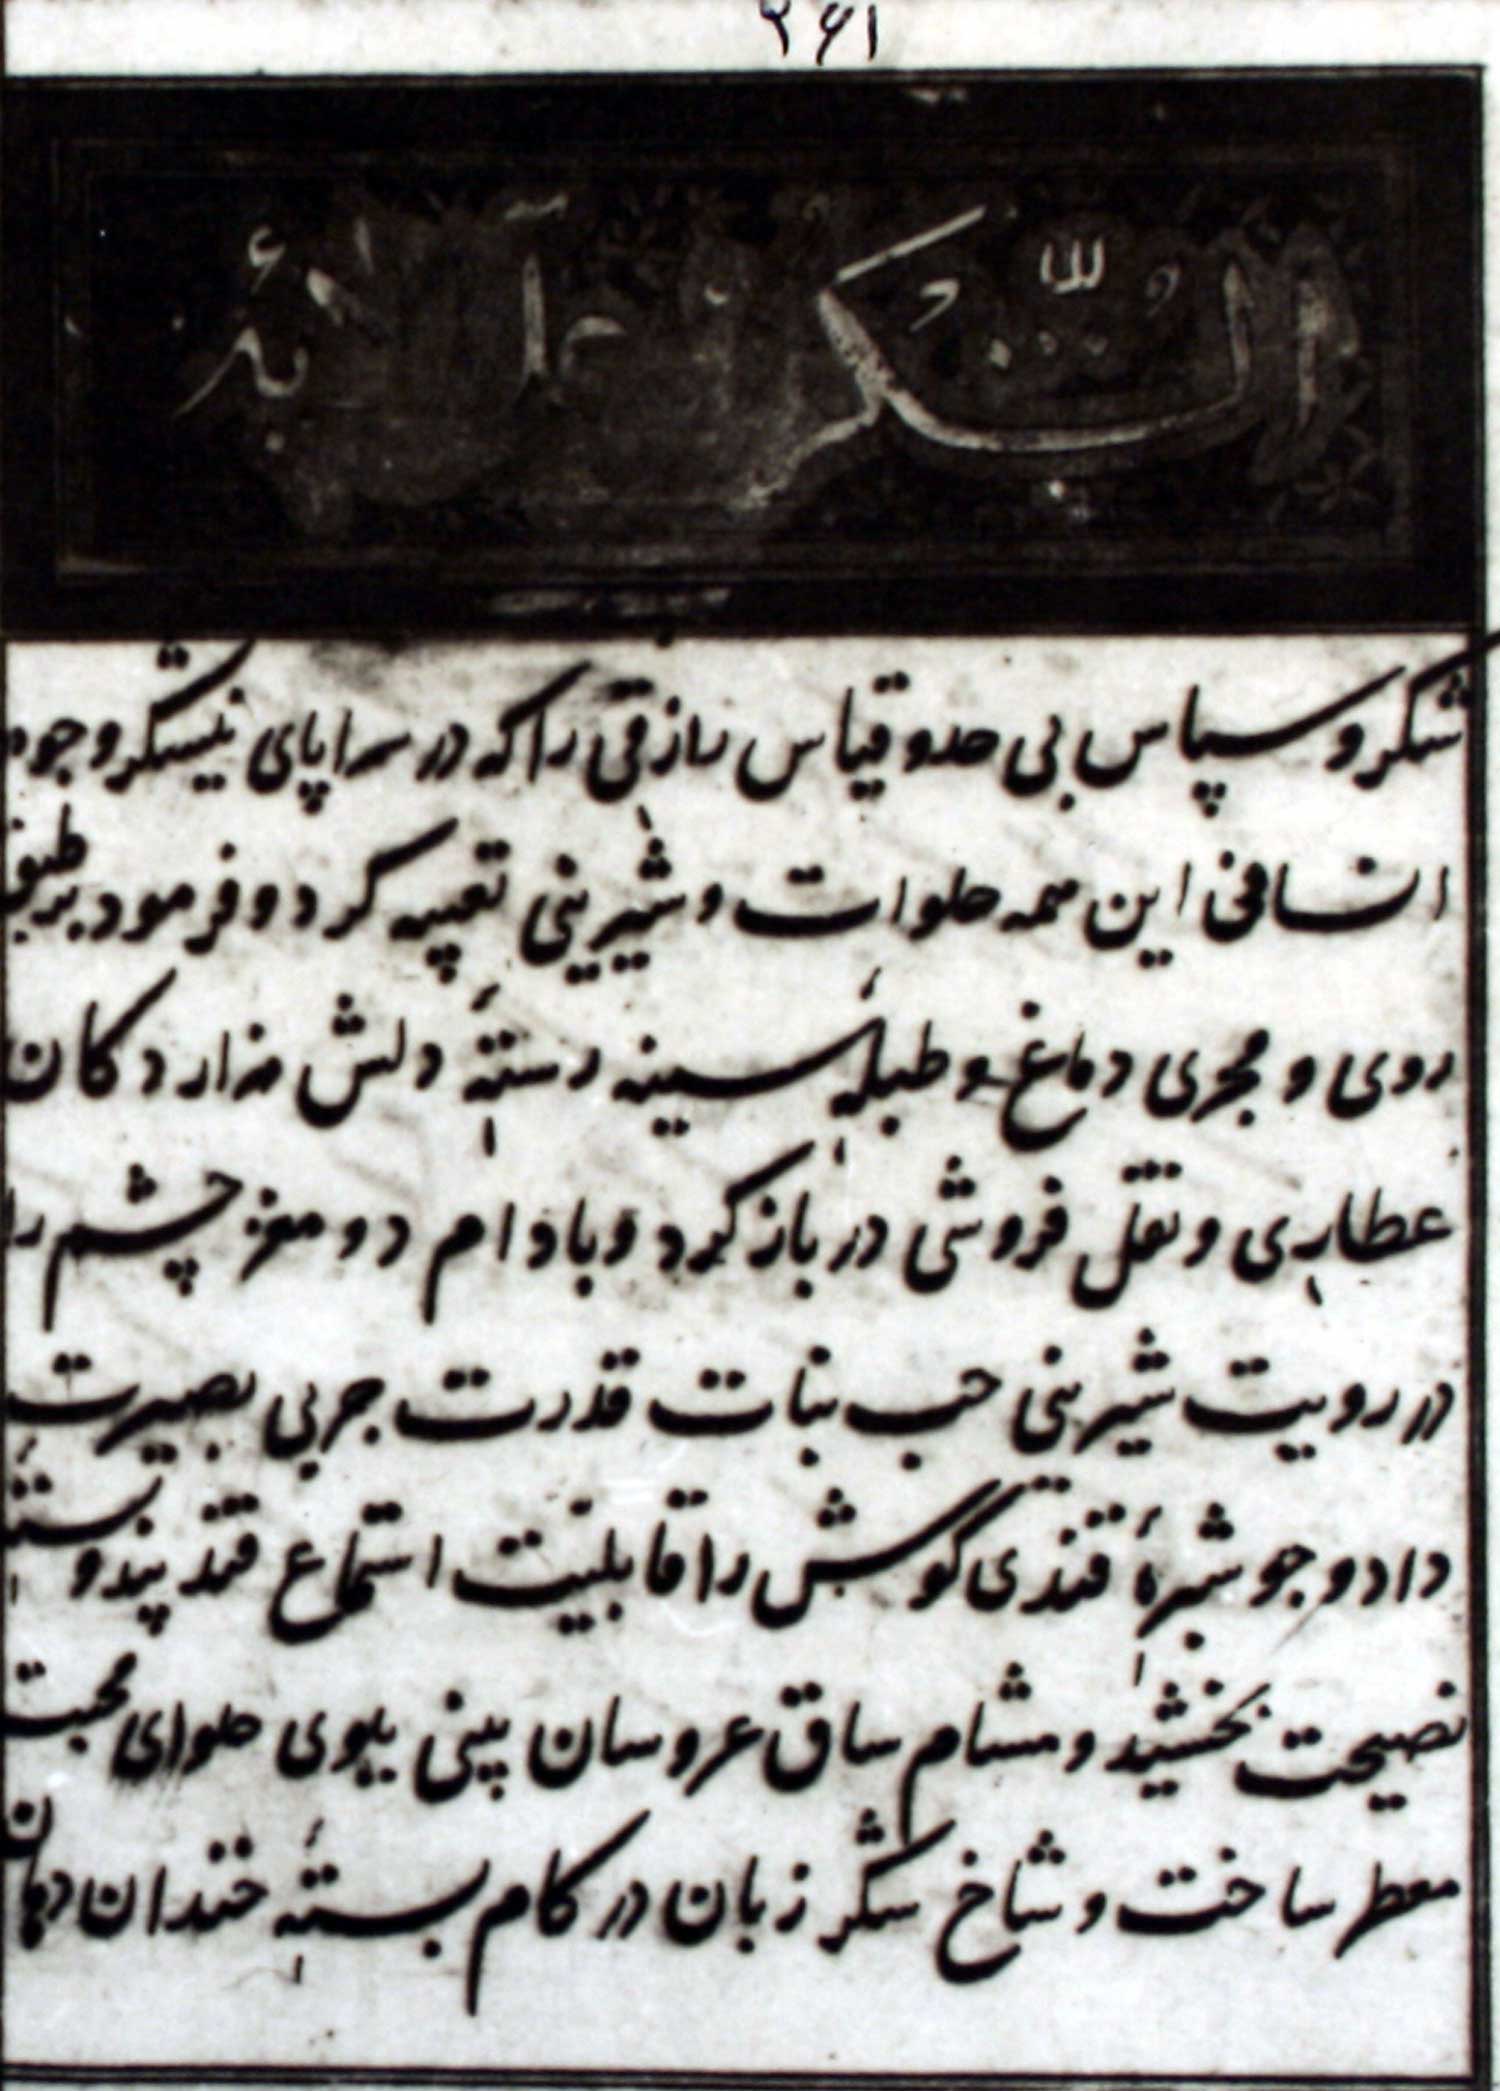 ۲۶۱
الشکر لله
شکر و سپاس بی حد و قیاس رازقی را که در سراپای نیشکر وجود
انسانی این همه حلوات و شیرینی تعبیه کرد و فرمود بر طبق
روی و مجری دماغ و طبلهٔ سینه دستهٔ دلش هزار دکان
عطاری و نقل فروشی در باز کرد و بادام دو مغز چشم را
در رویت شیرینی حب نبات قدرت چربی بصیرت
داد و جوشبرهٔ قندی گوش را قابلیت استماع قند پند و پستهٔ
نصیحت بخشید و مشام ساق عروسان بینی ببوی حلوای محبت
معطر ساخت و شاخ شکر زبان در کام پستهٔ خندان دهان